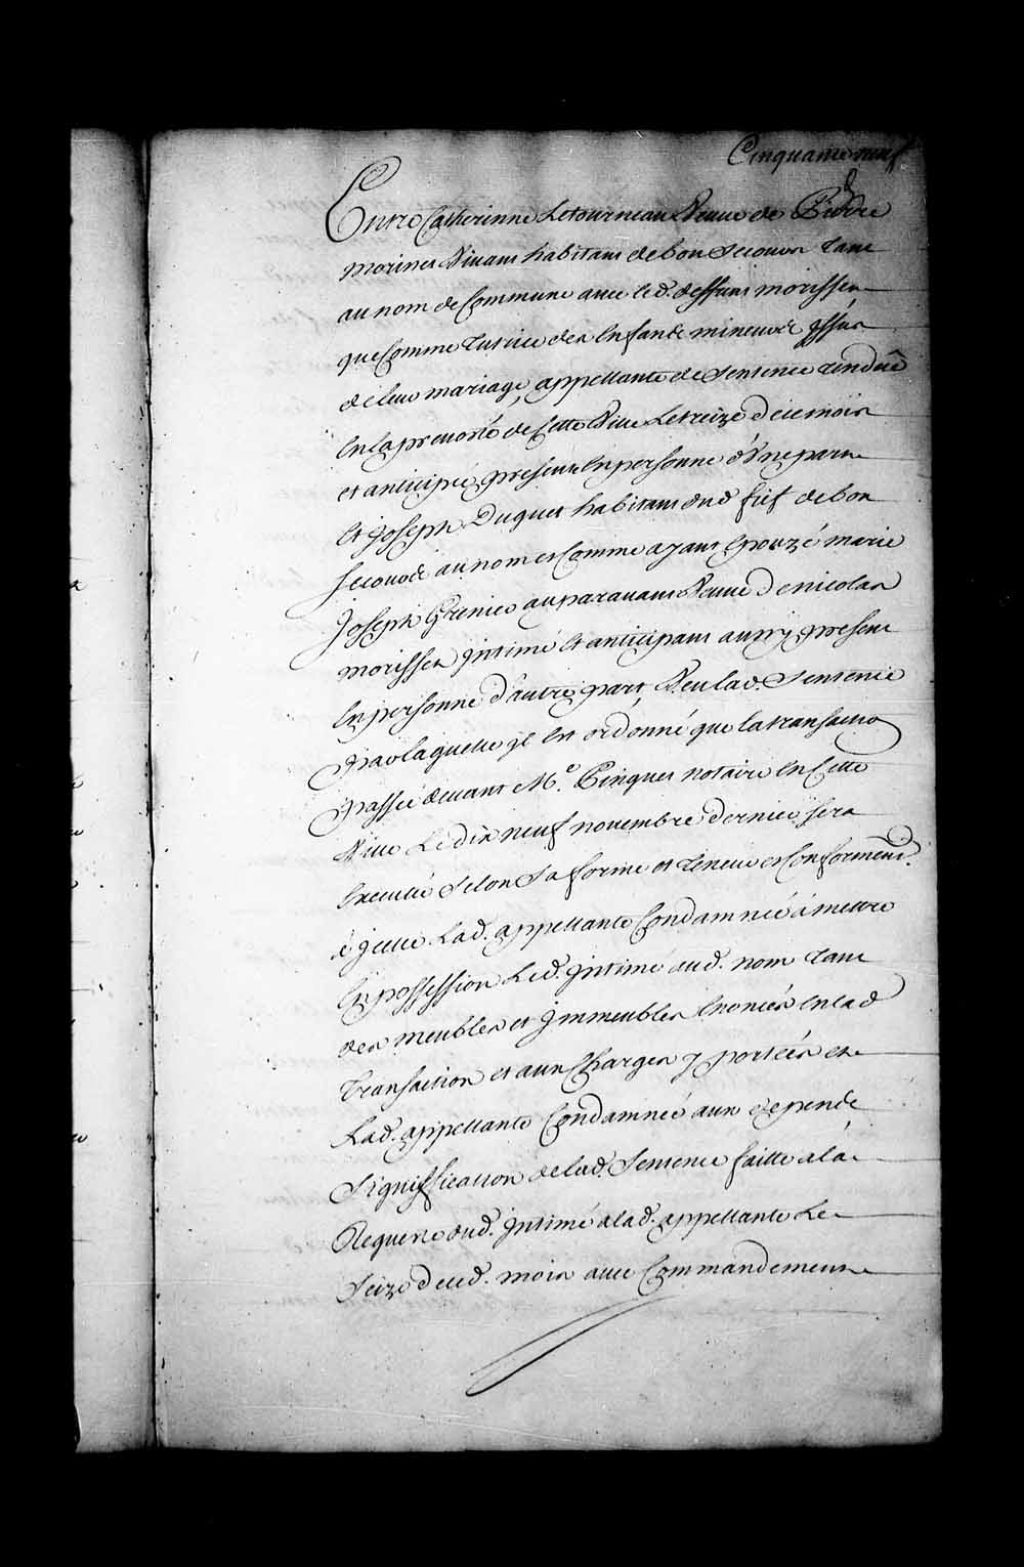 Cinquante neuf
Entre Catherinne Letourneau Veuve de Pierre
morisset Vivant habitant de bon secours tant
au nom de Commune avec led. deffunt morisset
que Comme tutrice des Enfants mineurs Jssus
de leur mariage, appellante de sentence rendüe
En la prevosté de Cette Ville Le treize de ce mois
et anticipée, presente En personne d'Vne part
Et Joseph Duquet habitant dud fief de bon
secours au nom et Comme ayant Epouzé marie
Joseph Grenier auparavant Veuve de nicolas
morisset Jntimé Et anticipant aussy present
En personne d'autre part, Veu lad. Sentence
Par laquelle jl Est ordonné que la transaction
passée devant Me. Pinguet notaire En Cette
Ville Le dix neuf novembre dernier, sera
Executée Selon Sa forme et teneur et Conformémt.
à jcelle Lad. appellante Condamnée à mettre
En possession Led. Jntimé aud. nom tant
des meubles et Jmmeubles Enoncés En lad
transaction et aux Charges y portées et
Lad. appellante Condamnée aux depends
Signiffication de lad. Sentence faitte a la
Requeste dud. Jntimé a lad. appellante Le
Seize dud. mois avec Commandement